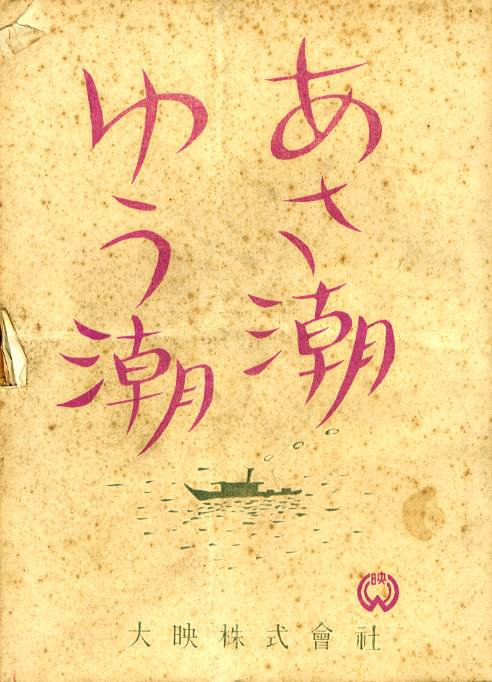 あさ潮
ゆう潮
映
大映株式會社